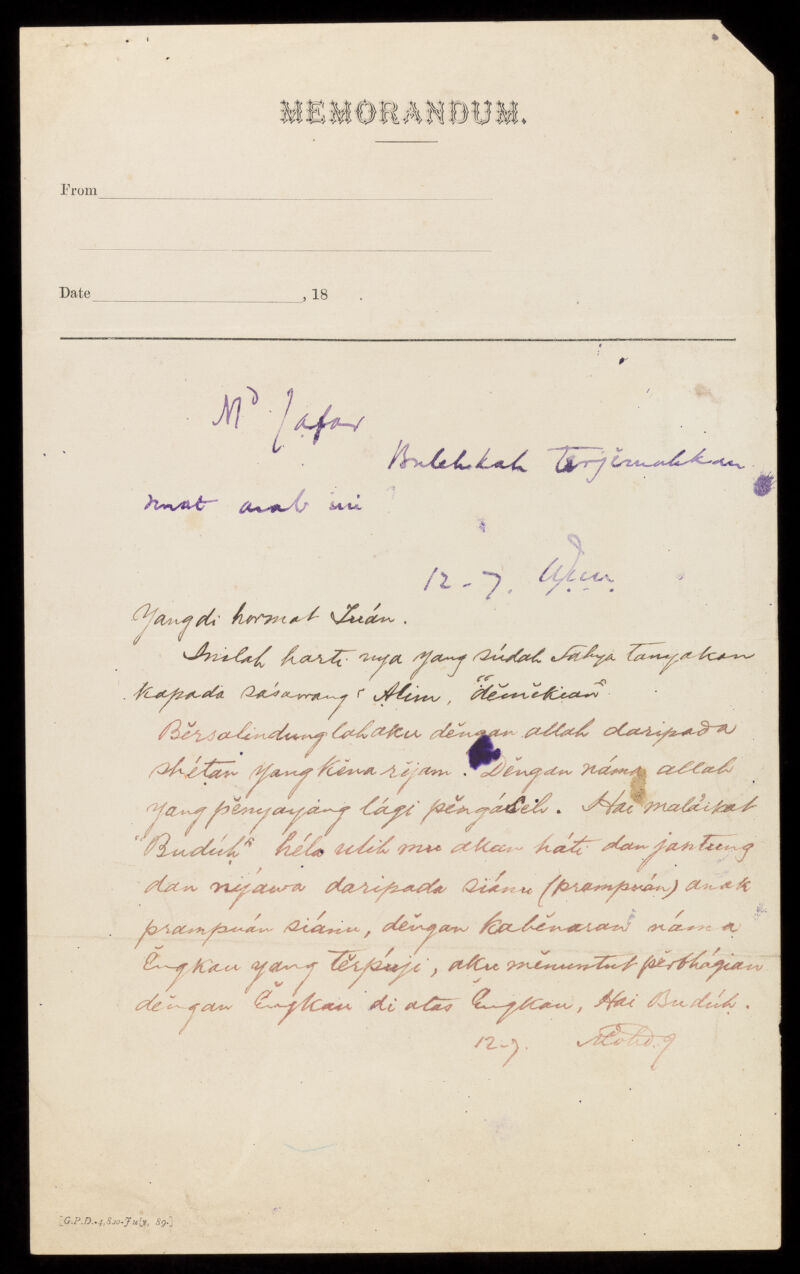 MEMORANDUM.
From
Date , 18 .
Md Jafar
Bulehkah terjĕmahkan
surat arab ini
12-7.
Yang di hormat Tuán.
Inilah harti nya yang súdah Sahya tanyakan
kapada sásaorang Alim, "dĕmĕkian"
Bĕrsalindunglah aku dĕngan allah daripada
shétan yang kĕna rĕjam. Dĕngan náma allah
yang pĕnyayang lági pĕngásih. Hai maláikat
"Budúh" héla ulih mu akan háti dan jantung
dan nyáwa daripada siánu (prampuán) anak
prampuán siánu, dĕngan kabĕnaran náma
Ĕngkau yang tĕrpúji, aku mĕnuntut pĕrbhágian
dĕngan Ĕngkau di atas Ĕngkau, Hai Budúh.
12-7. Mohd. J
[G.P.D.-4,800-July, 89.]